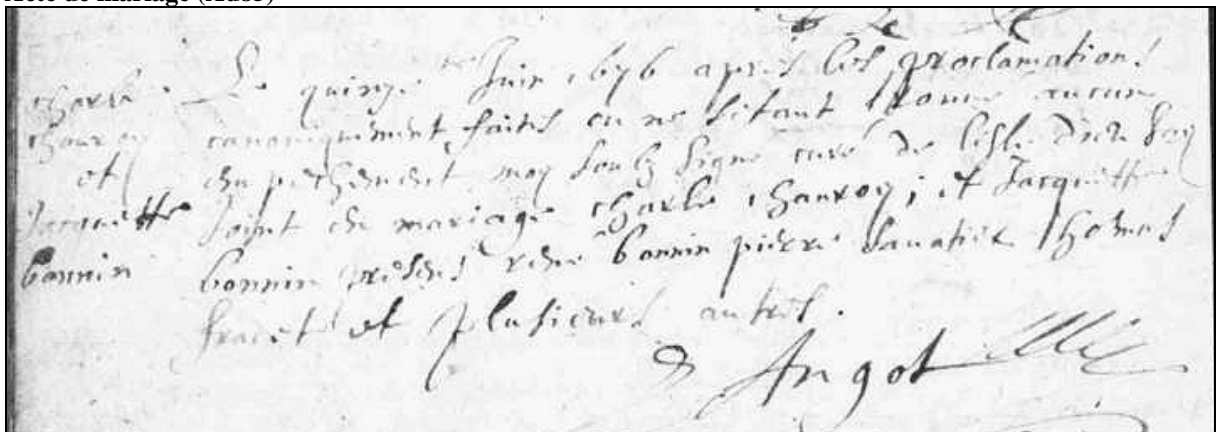 Acte de mariage
charle
chauroy
et
Jacquette
bonnin
Le quinze Juin 1696 apres les proclamations
canoniquement faites ou ne sitant trouve aucun
enpechement moy soubz signe curé de lisle dieu
Joint en mariage charle chauroy ; et Jacquette
bonnin presens rene bonnin pierre thomas
fradet et plusieurs autres .
Angot